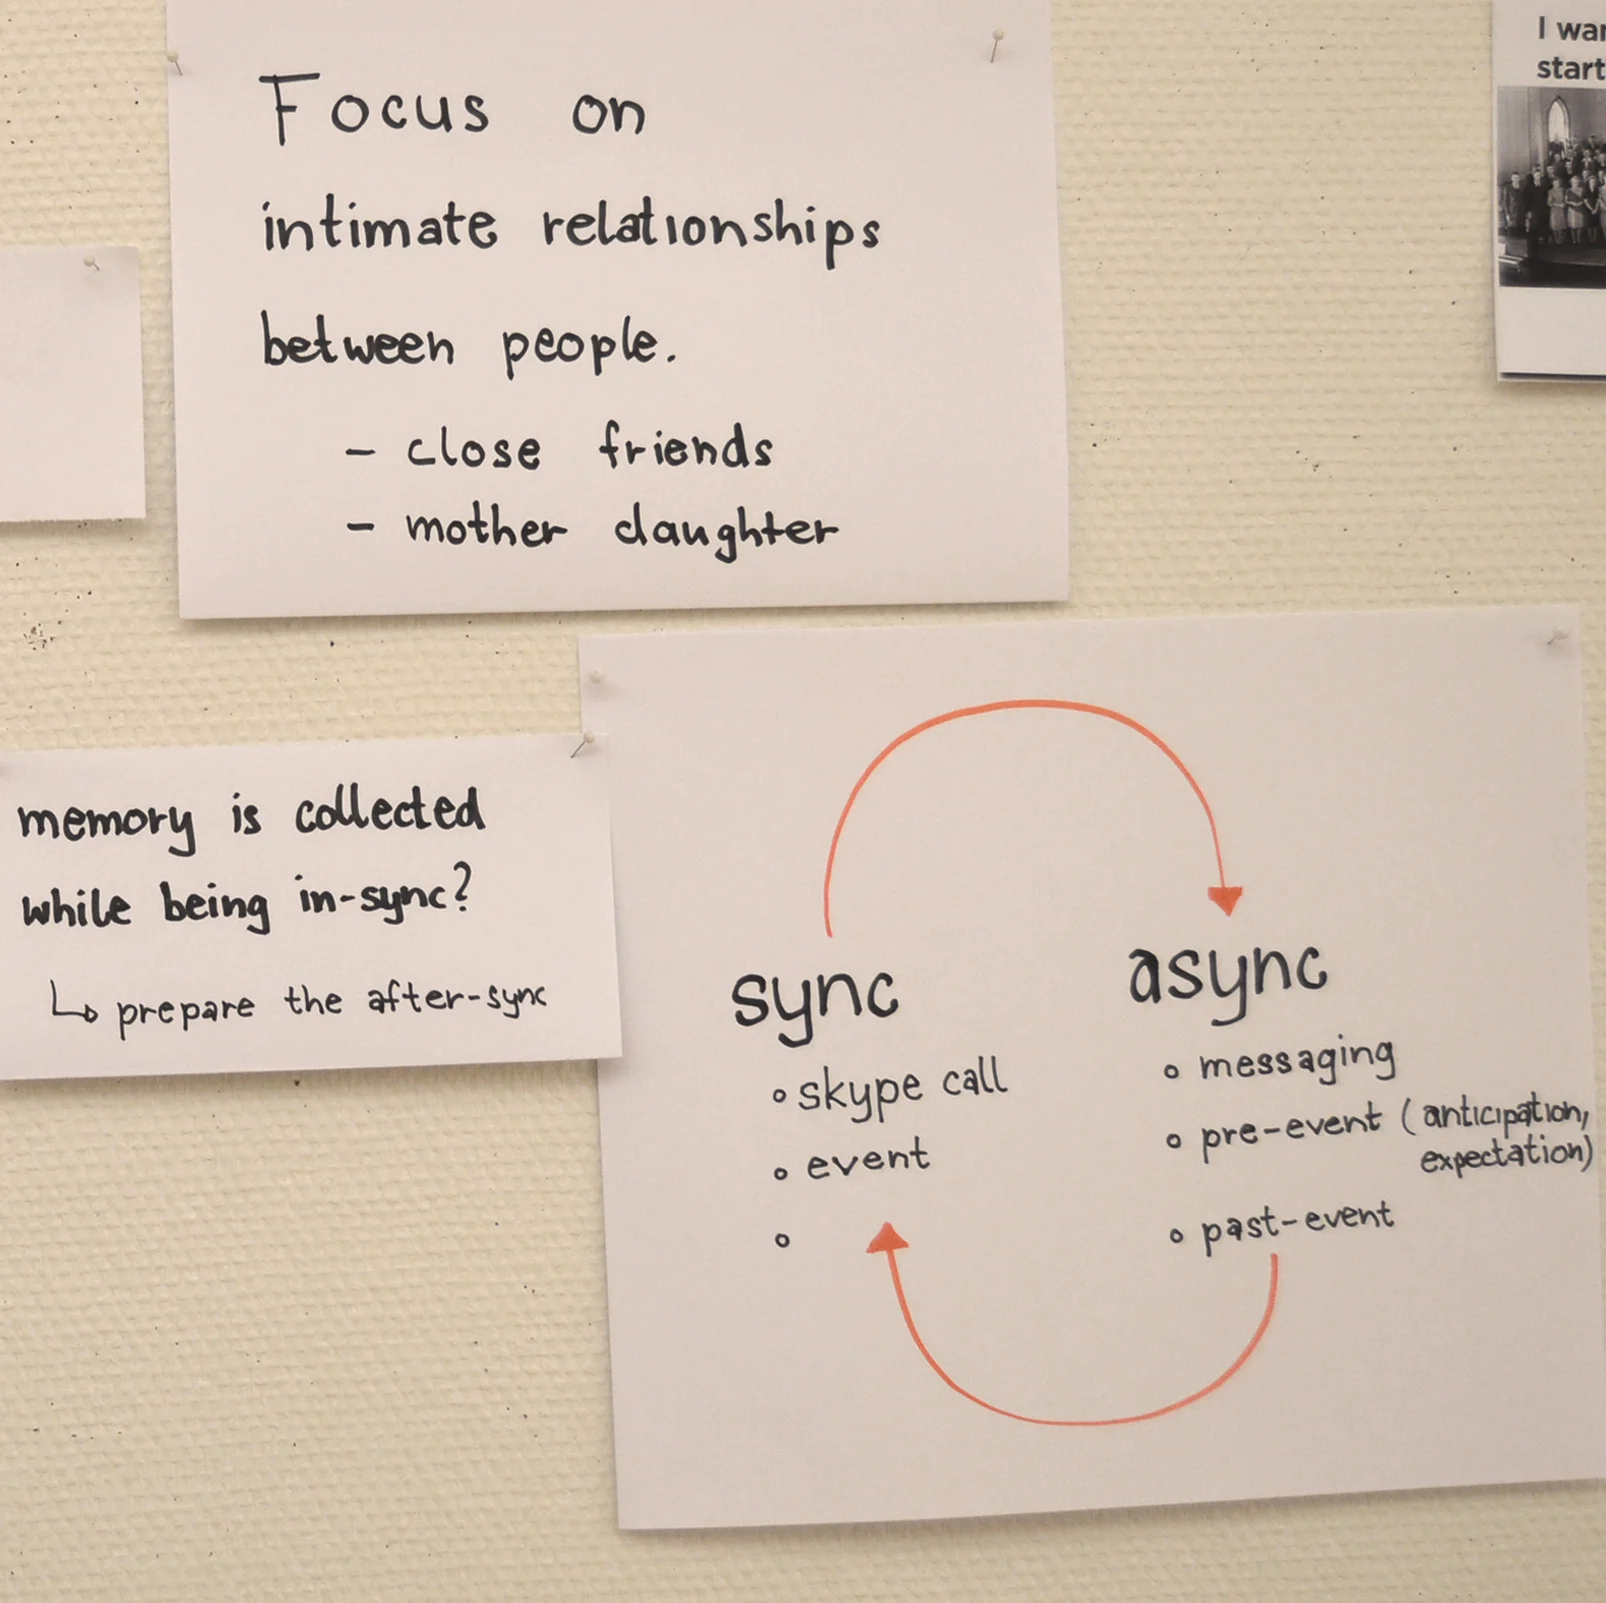 Focus on
intimate relationships
between people.
- close friends
- mother daughter
I
start
memory is collected
while being in-sync?
↳ prepare the after-sync
sync
∘ skype call
∘ event
∘
async
∘ messaging
∘ pre-event (anticipation,
expectation)
∘ past-event